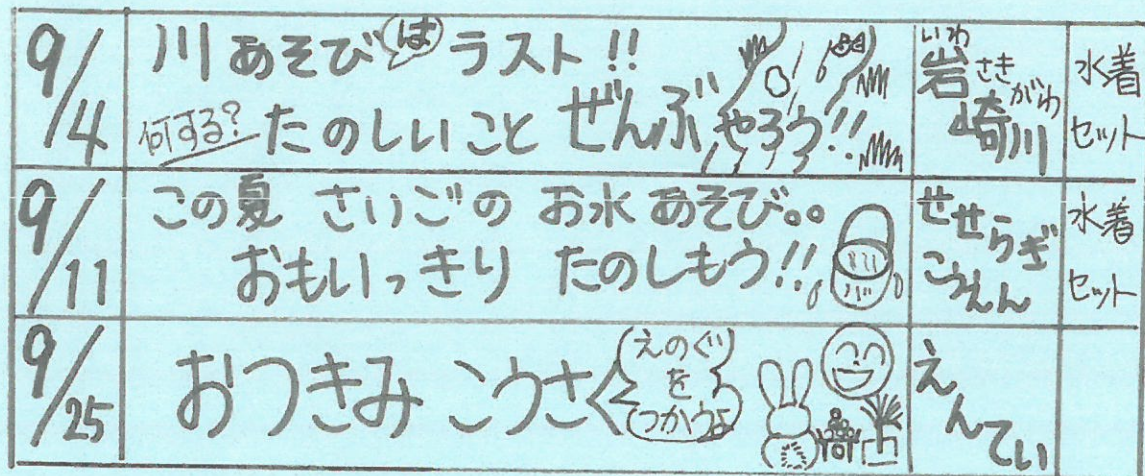 9/4
川あそびは ラスト!!
何する? たのしいこと ぜんぶ やろう!!
いわ さき がわ
岩崎川
水着
セット
9/11
この夏 さいごの お水あそび。。
おもいっきり たのしもう!!
せせらぎ
こうえん
水着
セット
9/25
おつきみ こうさく
えのぐ
を
つかうよ
えんてい